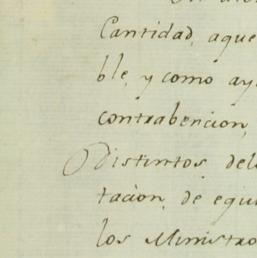 Cantidad, aque
ble, y como ay
contrabencion,
Distintos del
tacion, de equi
los Ministro